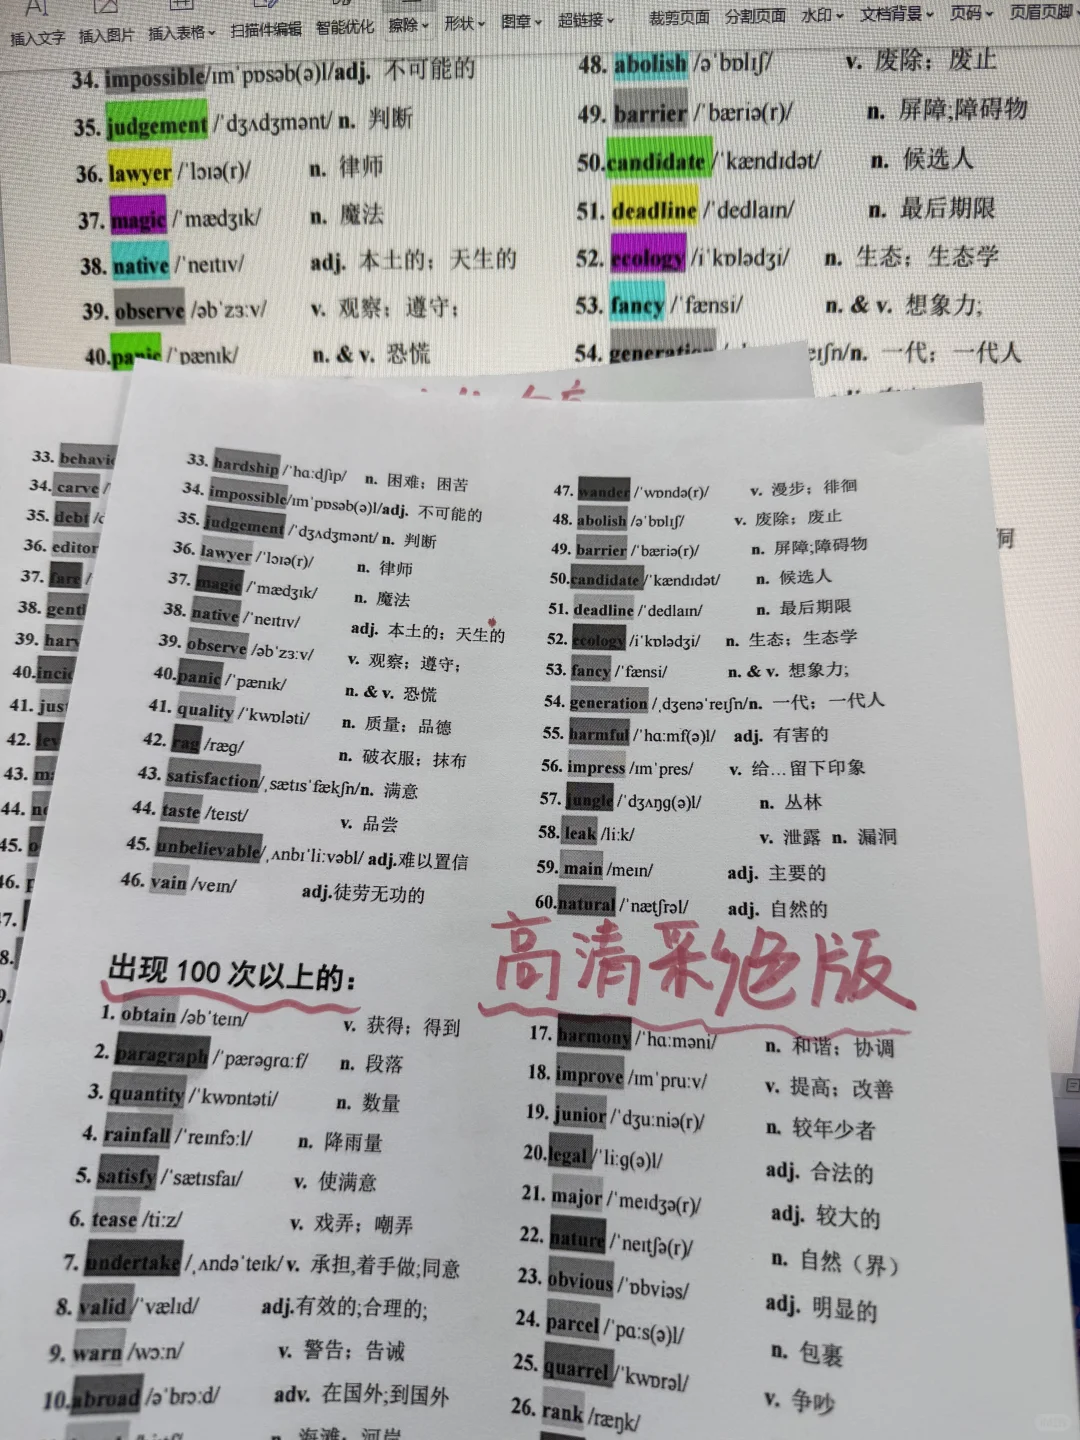 插入文字 插入图片 插入表格 扫描件编辑 智能优化 擦除 形状 图章 超链接 裁剪页面 分割页面 水印 文档背景 页码 页眉页脚
34. impossible/ɪmˈpɒsəb(ə)l/adj. 不可能的
35. judgement /ˈdʒʌdʒmənt/ n. 判断
36. lawyer /ˈlɔɪə(r)/ n. 律师
37. magic /ˈmædʒɪk/ n. 魔法
38. native /ˈneɪtɪv/ adj. 本土的；天生的
39. observe /əbˈzɜːv/ v. 观察；遵守；
40.panic /ˈpænɪk/ n. & v. 恐慌
48. abolish /əˈbɒlɪʃ/ v. 废除；废止
49. barrier /ˈbæriə(r)/ n. 屏障;障碍物
50.candidate /ˈkændɪdət/ n. 候选人
51. deadline /ˈdedlaɪn/ n. 最后期限
52. ecology /iˈkɒlədʒi/ n. 生态；生态学
53. fancy /ˈfænsi/ n. & v. 想象力;
54. generation eɪʃn/n. 一代；一代人
33. behavi
34. carve /
35. debt /
36. editor
37. fare /
38. gentl
39. har
40.incid
41. jus
42.
43.
44.
45.
46.
33. hardship /ˈhɑːdʃɪp/ n. 困难；困苦
34. impossible/ɪmˈpɒsəb(ə)l/adj. 不可能的
35. judgement /ˈdʒʌdʒmənt/ n. 判断
36. lawyer /ˈlɔɪə(r)/ n. 律师
37. magic /ˈmædʒɪk/ n. 魔法
38. native /ˈneɪtɪv/ adj. 本土的；天生的
39. observe /əbˈzɜːv/ v. 观察；遵守；
40.panic /ˈpænɪk/ n. & v. 恐慌
41. quality /ˈkwɒləti/ n. 质量；品德
42. rag /ræg/ n. 破衣服；抹布
43. satisfaction/ˌsætɪsˈfækʃn/n. 满意
44. taste /teɪst/ v. 品尝
45. unbelievable/ˌʌnbɪˈliːvəbl/ adj.难以置信
46. vain /veɪn/ adj.徒劳无功的
47. wander /ˈwɒndə(r)/ v. 漫步；徘徊
48. abolish /əˈbɒlɪʃ/ v. 废除；废止
49. barrier /ˈbæriə(r)/ n. 屏障;障碍物
50.candidate /ˈkændɪdət/ n. 候选人
51. deadline /ˈdedlaɪn/ n. 最后期限
52. ecology /iˈkɒlədʒi/ n. 生态；生态学
53. fancy /ˈfænsi/ n. & v. 想象力;
54. generation /ˌdʒenəˈreɪʃn/n. 一代；一代人
55. harmful /ˈhɑːmf(ə)l/ adj. 有害的
56. impress /ɪmˈpres/ v. 给…留下印象
57. jungle /ˈdʒʌŋg(ə)l/ n. 丛林
58. leak /liːk/ v. 泄露 n. 漏洞
59. main /meɪn/ adj. 主要的
60.natural /ˈnætʃrəl/ adj. 自然的
高清彩色版
出现 100 次以上的：
1. obtain /əbˈteɪn/ v. 获得；得到
2. paragraph /ˈpærəgrɑːf/ n. 段落
3. quantity /ˈkwɒntəti/ n. 数量
4. rainfall /ˈreɪnfɔːl/ n. 降雨量
5. satisfy /ˈsætɪsfaɪ/ v. 使满意
6. tease /tiːz/ v. 戏弄；嘲弄
7. undertake /ˌʌndəˈteɪk/ v. 承担,着手做;同意
8. valid /ˈvælɪd/ adj.有效的;合理的;
9. warn /wɔːn/ v. 警告；告诫
10.abroad /əˈbrɔːd/ adv. 在国外;到国外
n. 海滩；河岸
17. harmony /ˈhɑːməni/ n. 和谐；协调
18. improve /ɪmˈpruːv/ v. 提高；改善
19. junior /ˈdʒuːniə(r)/ n. 较年少者
20.legal /ˈliːg(ə)l/ adj. 合法的
21. major /ˈmeɪdʒə(r)/ adj. 较大的
22. nature /ˈneɪtʃə(r)/ n. 自然（界）
23. obvious /ˈɒbviəs/ adj. 明显的
24. parcel /ˈpɑːs(ə)l/ n. 包裹
25. quarrel /ˈkwɒrəl/ v. 争吵
26. rank /ræŋk/